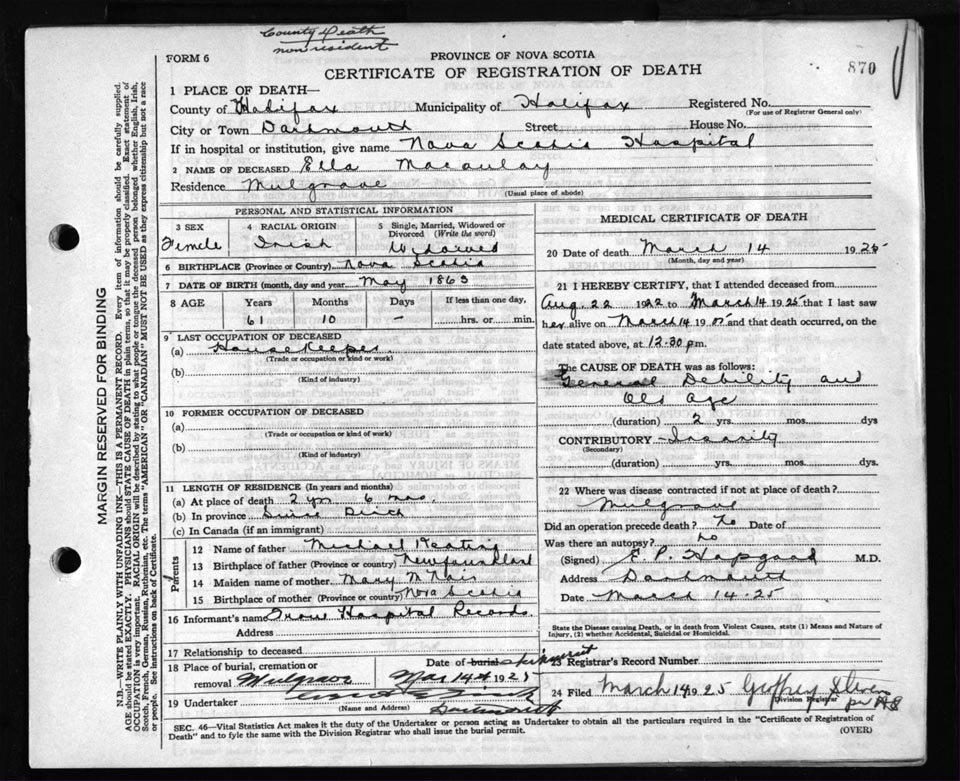 County Death
non resident
FORM 6
PROVINCE OF NOVA SCOTIA
CERTIFICATE OF REGISTRATION OF DEATH
870
1 PLACE OF DEATH—
County of Halifax Municipality of Halifax Registered No.
(For use of Registrar General only)
City or Town Dartmouth Street House No.
If in hospital or institution, give name Nova Scotia Hospital
2 NAME OF DECEASED Ella Macaulay
Residence Mulgrave
(Usual place of abode)
PERSONAL AND STATISTICAL INFORMATION
3 SEX 4 RACIAL ORIGIN 5 Single, Married, Widowed or Divorced (Write the word)
Female Irish Widowed
6 BIRTHPLACE (Province or Country) Nova Scotia
7 DATE OF BIRTH (month, day and year) May 1863
8 AGE Years Months Days If less than one day,
61 10 – hrs. or min.
9 LAST OCCUPATION OF DECEASED
(a) House Keeper
(Trade or occupation or kind or work)
(b)
(Kind of industry)
10 FORMER OCCUPATION OF DECEASED
(a)
(Trade or occupation or kind of work)
(b)
(Kind of industry)
11 LENGTH OF RESIDENCE (In years and months)
(a) At place of death 2 yrs 6 mos.
(b) In province Since Birth
(c) In Canada (if an immigrant)
Parents
12 Name of father Michael Keating
13 Birthplace of father (Province or country) Newfoundland
14 Maiden name of mother Mary McNair
15 Birthplace of mother (Province or country) Nova Scotia
16 Informant's name From Hospital Records
Address
17 Relationship to deceased
18 Place of burial, cremation or removal Mulgrave
Date of burial shipment Mar 14th 1925
19 Undertaker
(Name and Address) Dartmouth
MEDICAL CERTIFICATE OF DEATH
20 Date of death March 14 1925
(Month, day and year)
21 I HEREBY CERTIFY, that I attended deceased from
Aug. 22 1922 to March 14 1925 that I last saw
her alive on March 14 1925 and that death occurred, on the
date stated above, at 12.30 pm.
The CAUSE OF DEATH was as follows:
General Debility and
Old Age
(duration) 2 yrs. mos. dys
CONTRIBUTORY Insanity
(Secondary)
(duration) yrs. mos. dys.
22 Where was disease contracted if not at place of death?
Mulgrave
Did an operation precede death? No Date of
Was there an autopsy? No
(Signed) E. P. Hapgood M.D.
Address Dartmouth
Date March 14-25
State the Disease causing Death, or in death from Violent Causes, state (1) Means and Nature of Injury, (2) whether Accidental, Suicidal or Homicidal.
23 Registrar's Record Number
24 Filed March 14 1925 Geffrey Stevens
Division Registrar
SEC. 46—Vital Statistics Act makes it the duty of the Undertaker or person acting as Undertaker to obtain all the particulars required in the "Certificate of Registration of
Death" and to fyle the same with the Division Registrar who shall issue the burial permit.
(OVER)
MARGIN RESERVED FOR BINDING
N.B.—WRITE PLAINLY WITH UNFADING INK—THIS IS A PERMANENT RECORD. Every item of information should be carefully supplied.
AGE should be stated EXACTLY. PHYSICIANS should STATE CAUSE OF DEATH in plain terms, so that it may be properly classified. Exact statement of
OCCUPATION is very important. RACIAL ORIGIN will be described by stating to what people or tongue the deceased person belonged whether English, Irish,
Scotch, French, German, Russian, Ruthenian, etc. The terms "AMERICAN" OR "CANADIAN" MUST NOT BE USED as they express citizenship but not a race
or people. See instructions on back of Certificate.